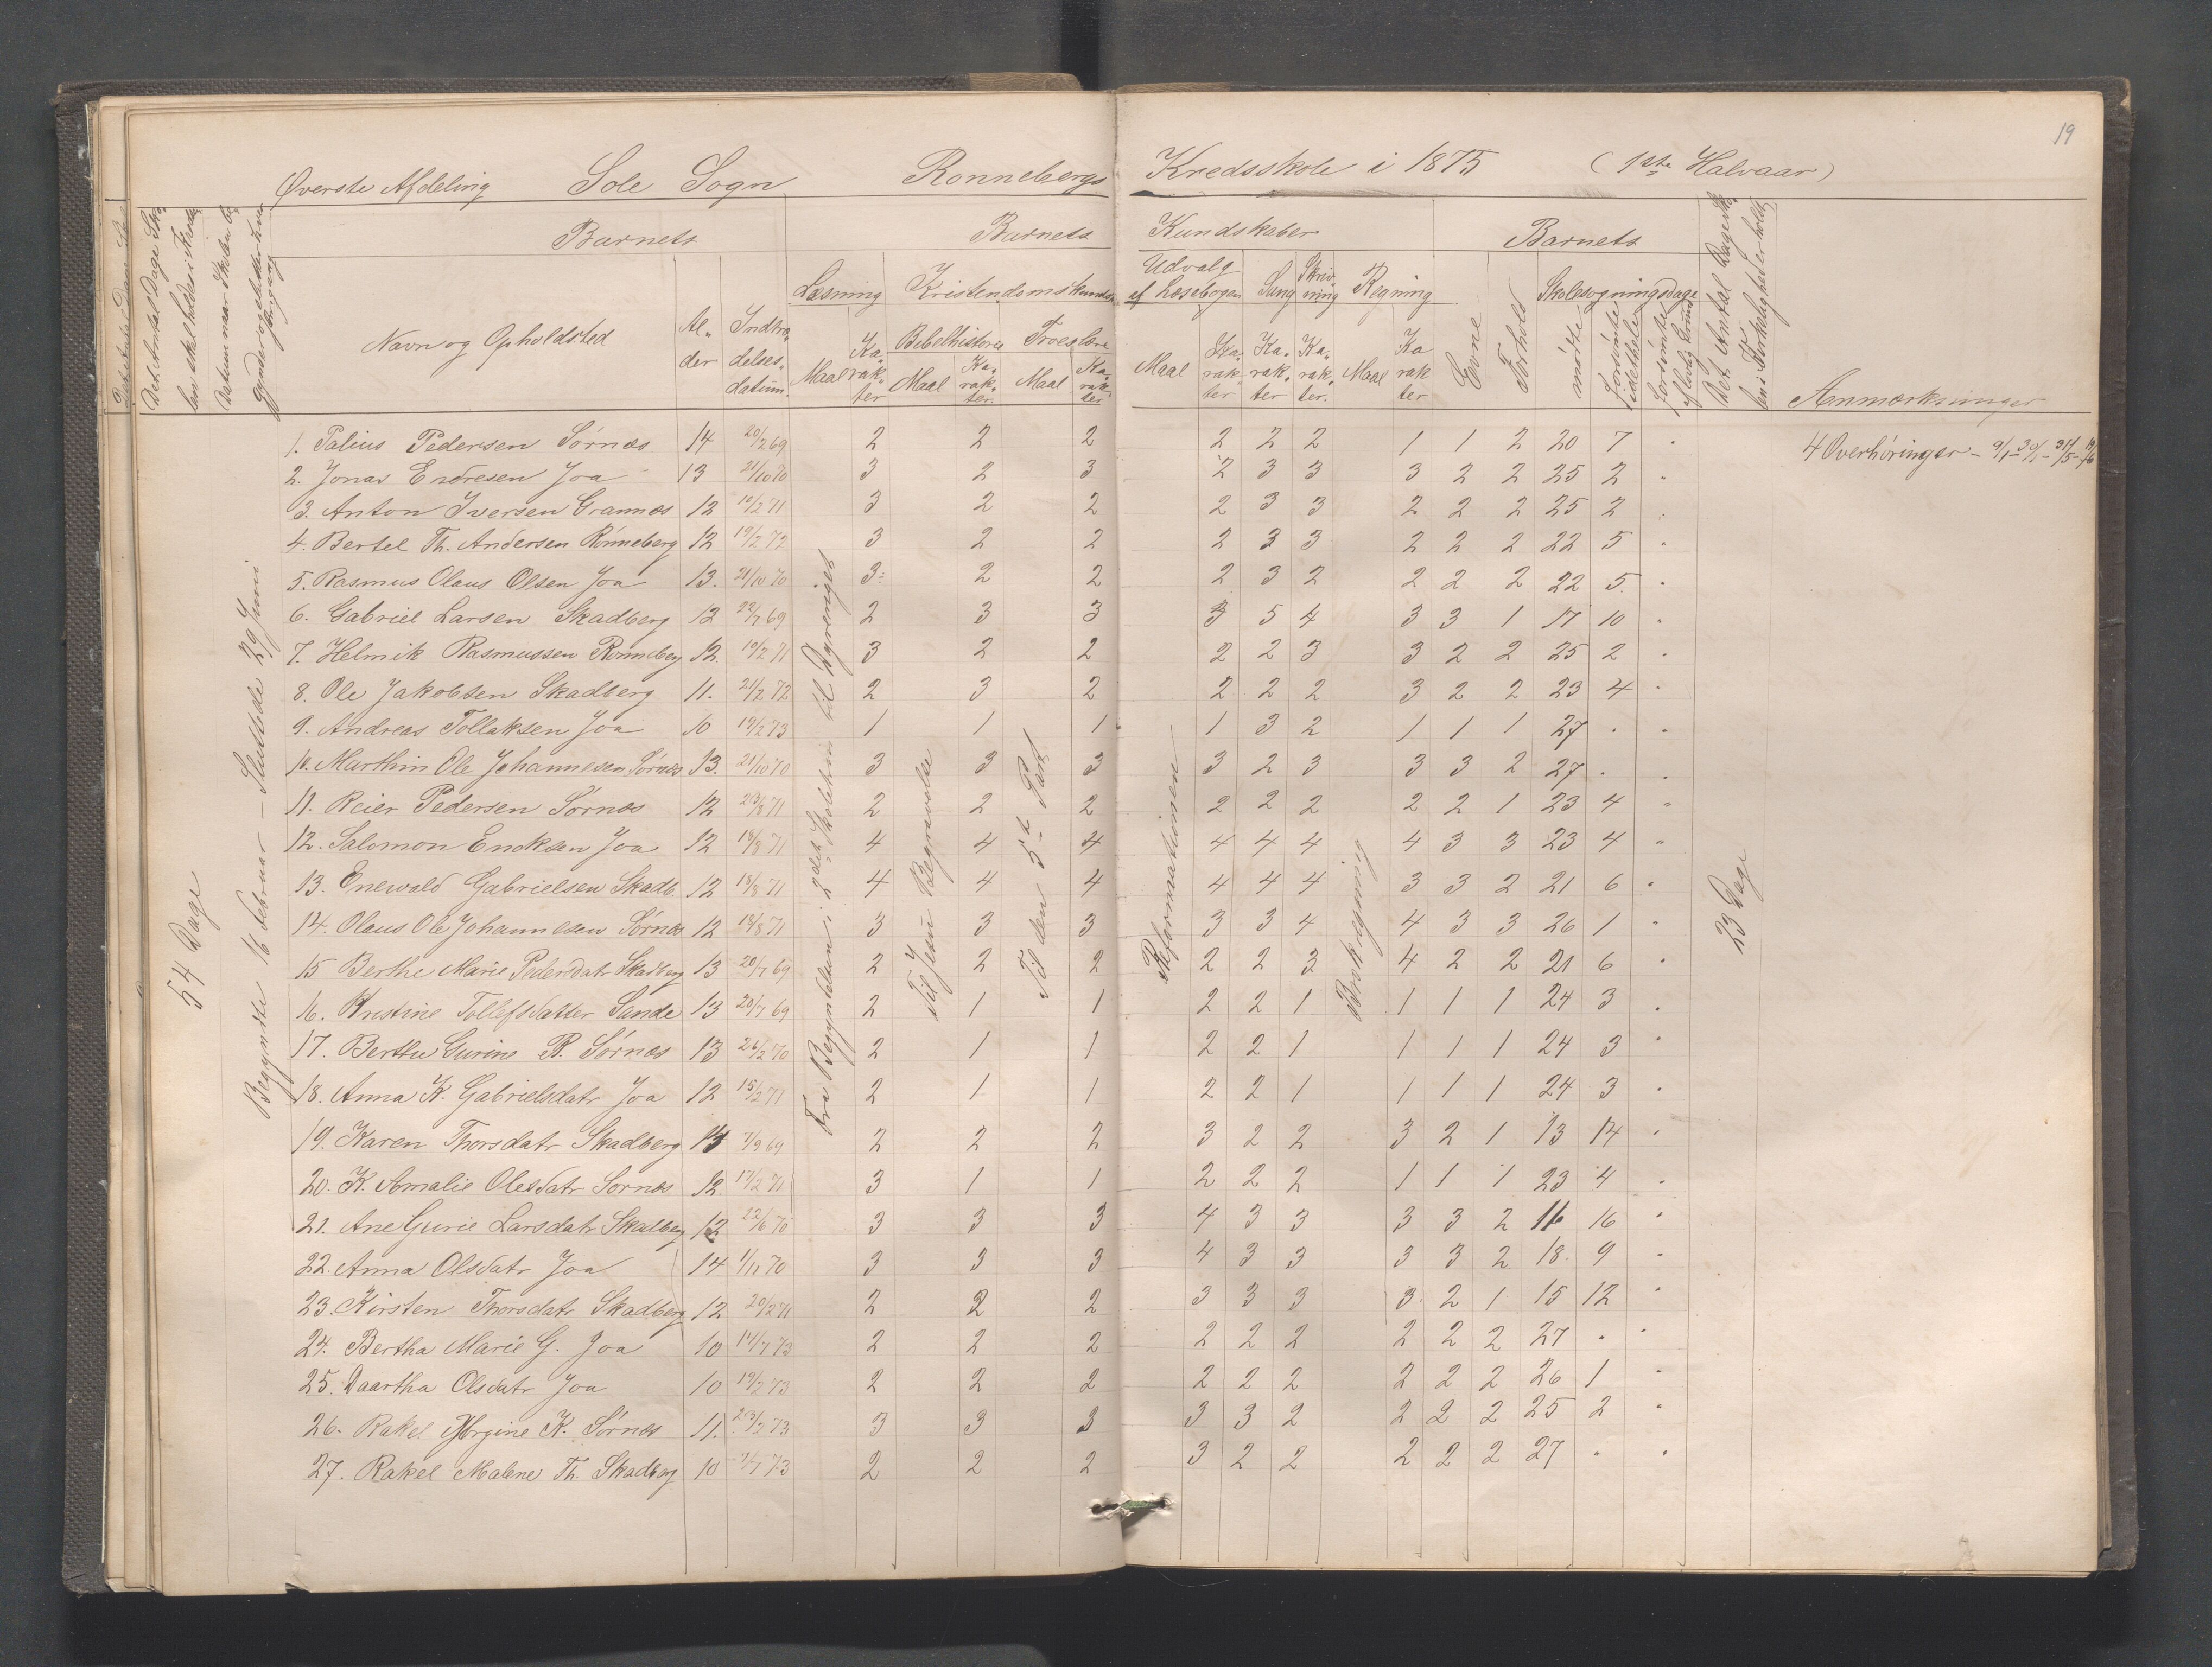 19
Øverste Afdeling Sole Sogn Ronnebergs Kredsskole i 1875 (1ste Halvaar)
Barnets Barnets Kundskaber Barnets
Læsning Kristendomskundsk Udvalg af Læsebogen Sang Skrivning Regning Evne Forhold Skolesøgningsdage
Navn og Opholdsted Alder Indtrædelsesdatum. Maal Karakter Bibelhistorie Maal Karakter. Troeslære Maal Karakter Maal Karakter Karakter Karakter. Maal Karakter mødte forsømte forsømte af lovlig Grund Anmærkninger
54 Dage
Begyndte 16 Februar – Sluttede 29 Juni
Fra Begyndelsen i 2det Skoletrin til Dyreriget
Til Jesu Begravelse
Til den 5te Part
Reformationen
Brøkregning
23 Dage
1. Palius Pedersen Sørnæs 14 20/2 69 2 2 2 2 2 2 1 1 2 20 7 " 4 Overhøringer
2. Jonas Endresen Joa 13 21/10 70 3 2 3 2 3 3 3 2 2 25 2 "
3. Anton Iversen Grannæs 12 10/2 71 3 2 2 2 3 3 2 2 2 25 2 "
4. Bertel Th. Andersen Rönneberg 12 19/2 72 3 2 2 2 3 3 2 2 2 22 5 "
5. Rasmus Olaus Olsen Joa 13. 21/10 70 3 2 2 2 3 2 2 2 2 22 5. "
6. Gabriel Larsen Skadberg 12 22/7 69 2 3 3 3 5 4 3 3 1 17 10 "
7. Helmik Rasmussen Ronneberg 12. 10/2 71 3 2 2 2 2 3 3 2 2 25 2 "
8. Ole Jakobsen Skadberg 11. 21/2 72 2 3 2 2 2 2 3 2 2 23 4 "
9. Andreas Tollaksen Joa 10 19/2 73 1 1 1 1 3 2 1 1 1 27 " "
10. Marthin Ole Johannesen Sørnæs 13. 21/10 70 3 3 3 3 2 3 3 3 2 27 " "
11. Reier Pedersen Sørnæs 12 23/8 71 2 2 2 2 2 2 2 2 1 23 4 "
12. Salomon Ericksen Joa 12 18/8 71 4 4 4 4 4 4 4 3 3 23 4 "
13. Enevald Gabrielsen Skadb. 12 18/8 71 4 4 4 4 4 4 3 3 2 21 6 "
14. Olaus Ole Johannesen Sørnæs 12 18/8 71 3 3 3 3 3 4 4 3 3 26 1 "
15 Berthe Marie Pedersdatr Skadberg 13 20/7 69 2 2 2 2 2 3 4 2 2 21 6 "
16. Kristine Tollefsdatter Sande 13 20/7 69 2 1 1 2 2 1 1 1 1 24 3 "
17. Berthe Gurine P. Sørnæs 13 26/2 70 2 1 1 2 2 1 1 1 1 24 3 "
18. Anna K. Gabrielsdatr Joa 12 15/2 71 2 1 1 2 2 1 1 1 1 24 3 "
19. Karen Thorsdatr Skadberg 13 7/9 69 2 2 2 3 2 2 3 2 1 13 14 "
20. K. Amalie Olesdatr Sornæs 12. 17/2 71 3 1 1 2 2 2 1 1 1 23 4 "
21. Ane Gurie Larsdatr Skadberg 12 22/6 70 3 3 3 4 3 3 3 3 2 11 16 "
22. Anna Olsdatr Joa 14 1/11 70 3 3 3 4 3 3 3 3 2 18. 9 "
23. Kirsten Thorsdatr Skadberg 12 20/2 71 2 2 2 3 3 3 3. 2 1 15 12 "
24. Bertha Marie G. Joa 10 17/7 73 2 2 2 2 2 2 2 2 2 27 " "
25. Daartha Olsdatr Joa 10 19/2 73 2 2 2 2 2 2 2 2 2 26 1 "
26. Rakel Jørgine K. Sørnæs 11. 23/2 73 3 3 3 3 3 2 2 2 2 25 2 "
27. Rakel Malene Th. Skadberg 10 7/7 73 2 2 2 3 2 2 2 2 2 27 " "